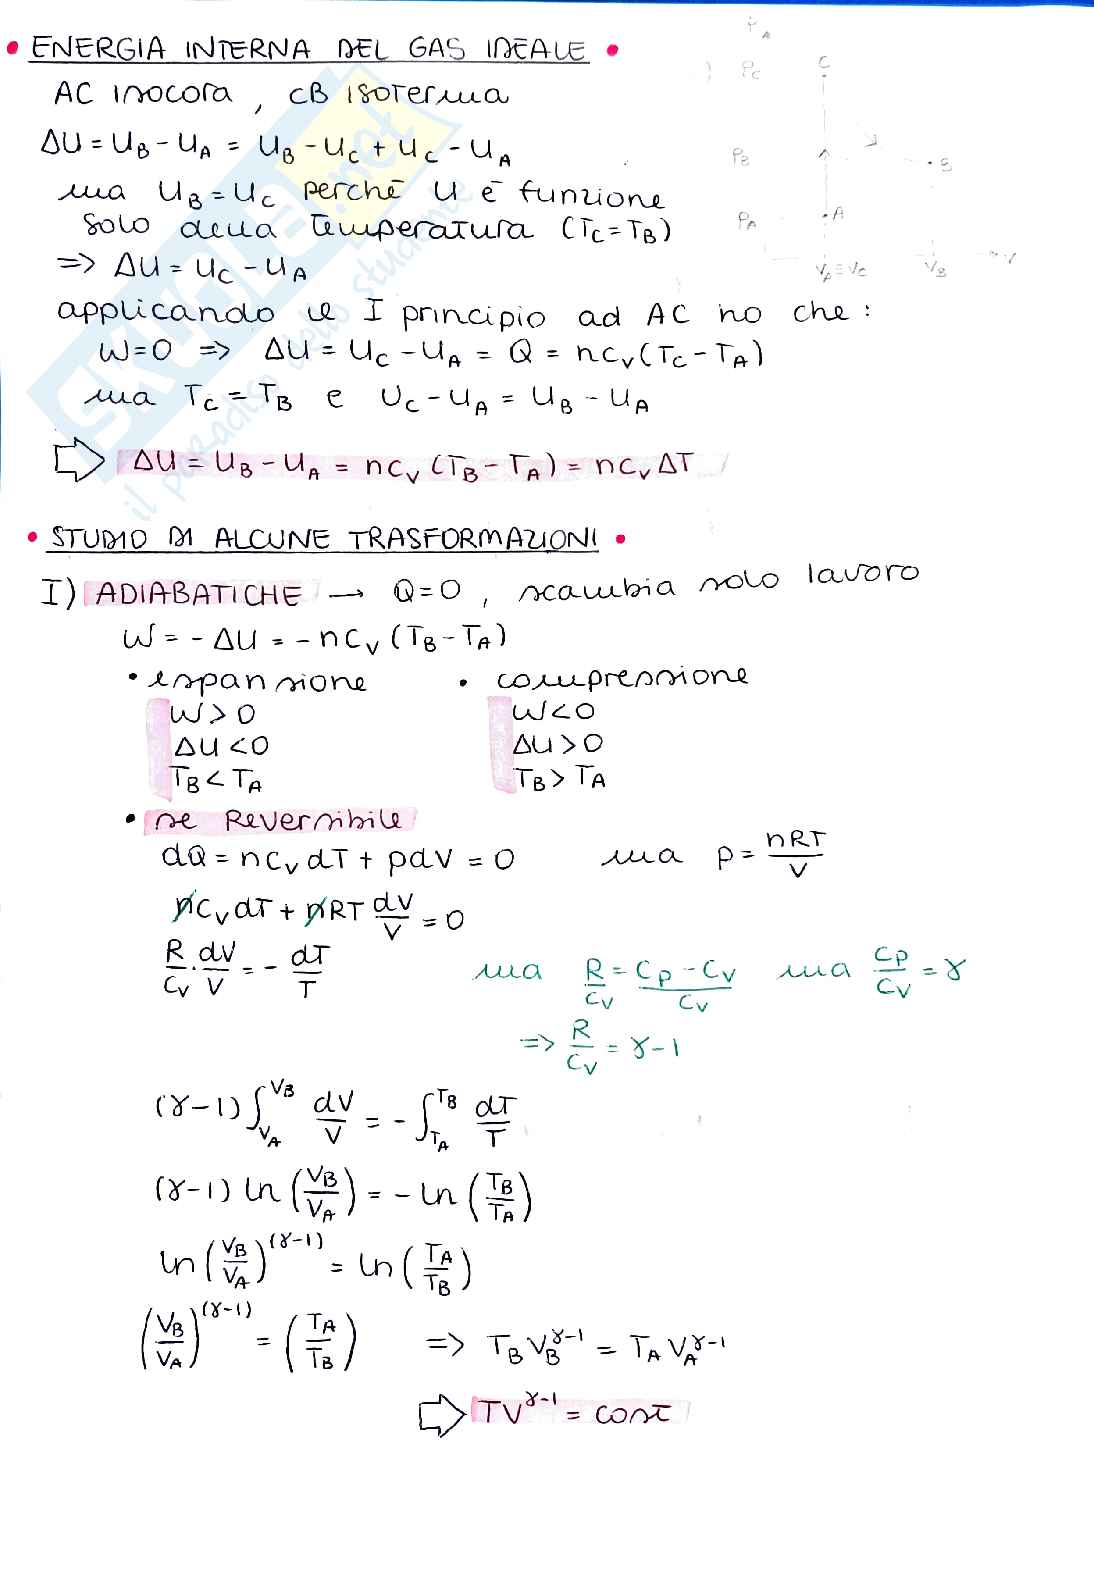 • ENERGIA INTERNA DEL GAS IDEALE •
AC isocora, CB isoterma
ΔU = U_B - U_A = U_B - U_C + U_C - U_A
ma U_B = U_C perché U è funzione
solo della temperatura (T_C = T_B)
=> ΔU = U_C - U_A
applicando il I principio ad AC ho che:
W=0 => ΔU = U_C - U_A = Q = nc_v(T_C - T_A)
ma T_C = T_B e U_C - U_A = U_B - U_A
⇨ ΔU = U_B - U_A = nc_v(T_B - T_A) = nc_vΔT
P_C C
P_B B
P_A A
V_A≡V_C V_B V
• STUDIO DI ALCUNE TRASFORMAZIONI •
I) ADIABATICHE → Q=0, scambia solo lavoro
W = -ΔU = -nc_v(T_B - T_A)
• espansione • compressione
W>0 W<0
ΔU<0 ΔU>0
T_B<T_A T_B>T_A
• se Reversibile
dQ = nc_vdT + pdV = 0 ma p = nRT/V
nc_vdT + nRT dV/V = 0
R/c_v · dV/V = - dT/T ma R/c_v = (c_p - c_v)/c_v ma c_p/c_v = γ
=> R/c_v = γ-1
(γ-1) ∫_{V_A}^{V_B} dV/V = - ∫_{T_A}^{T_B} dT/T
(γ-1) ln (V_B/V_A) = - ln (T_B/T_A)
ln (V_B/V_A)^(γ-1) = ln (T_A/T_B)
(V_B/V_A)^(γ-1) = (T_A/T_B) => T_B V_B^γ-1 = T_A V_A^γ-1
⇨ TV^γ-1 = cost
SKUOLA.net
il paradiso dello studente